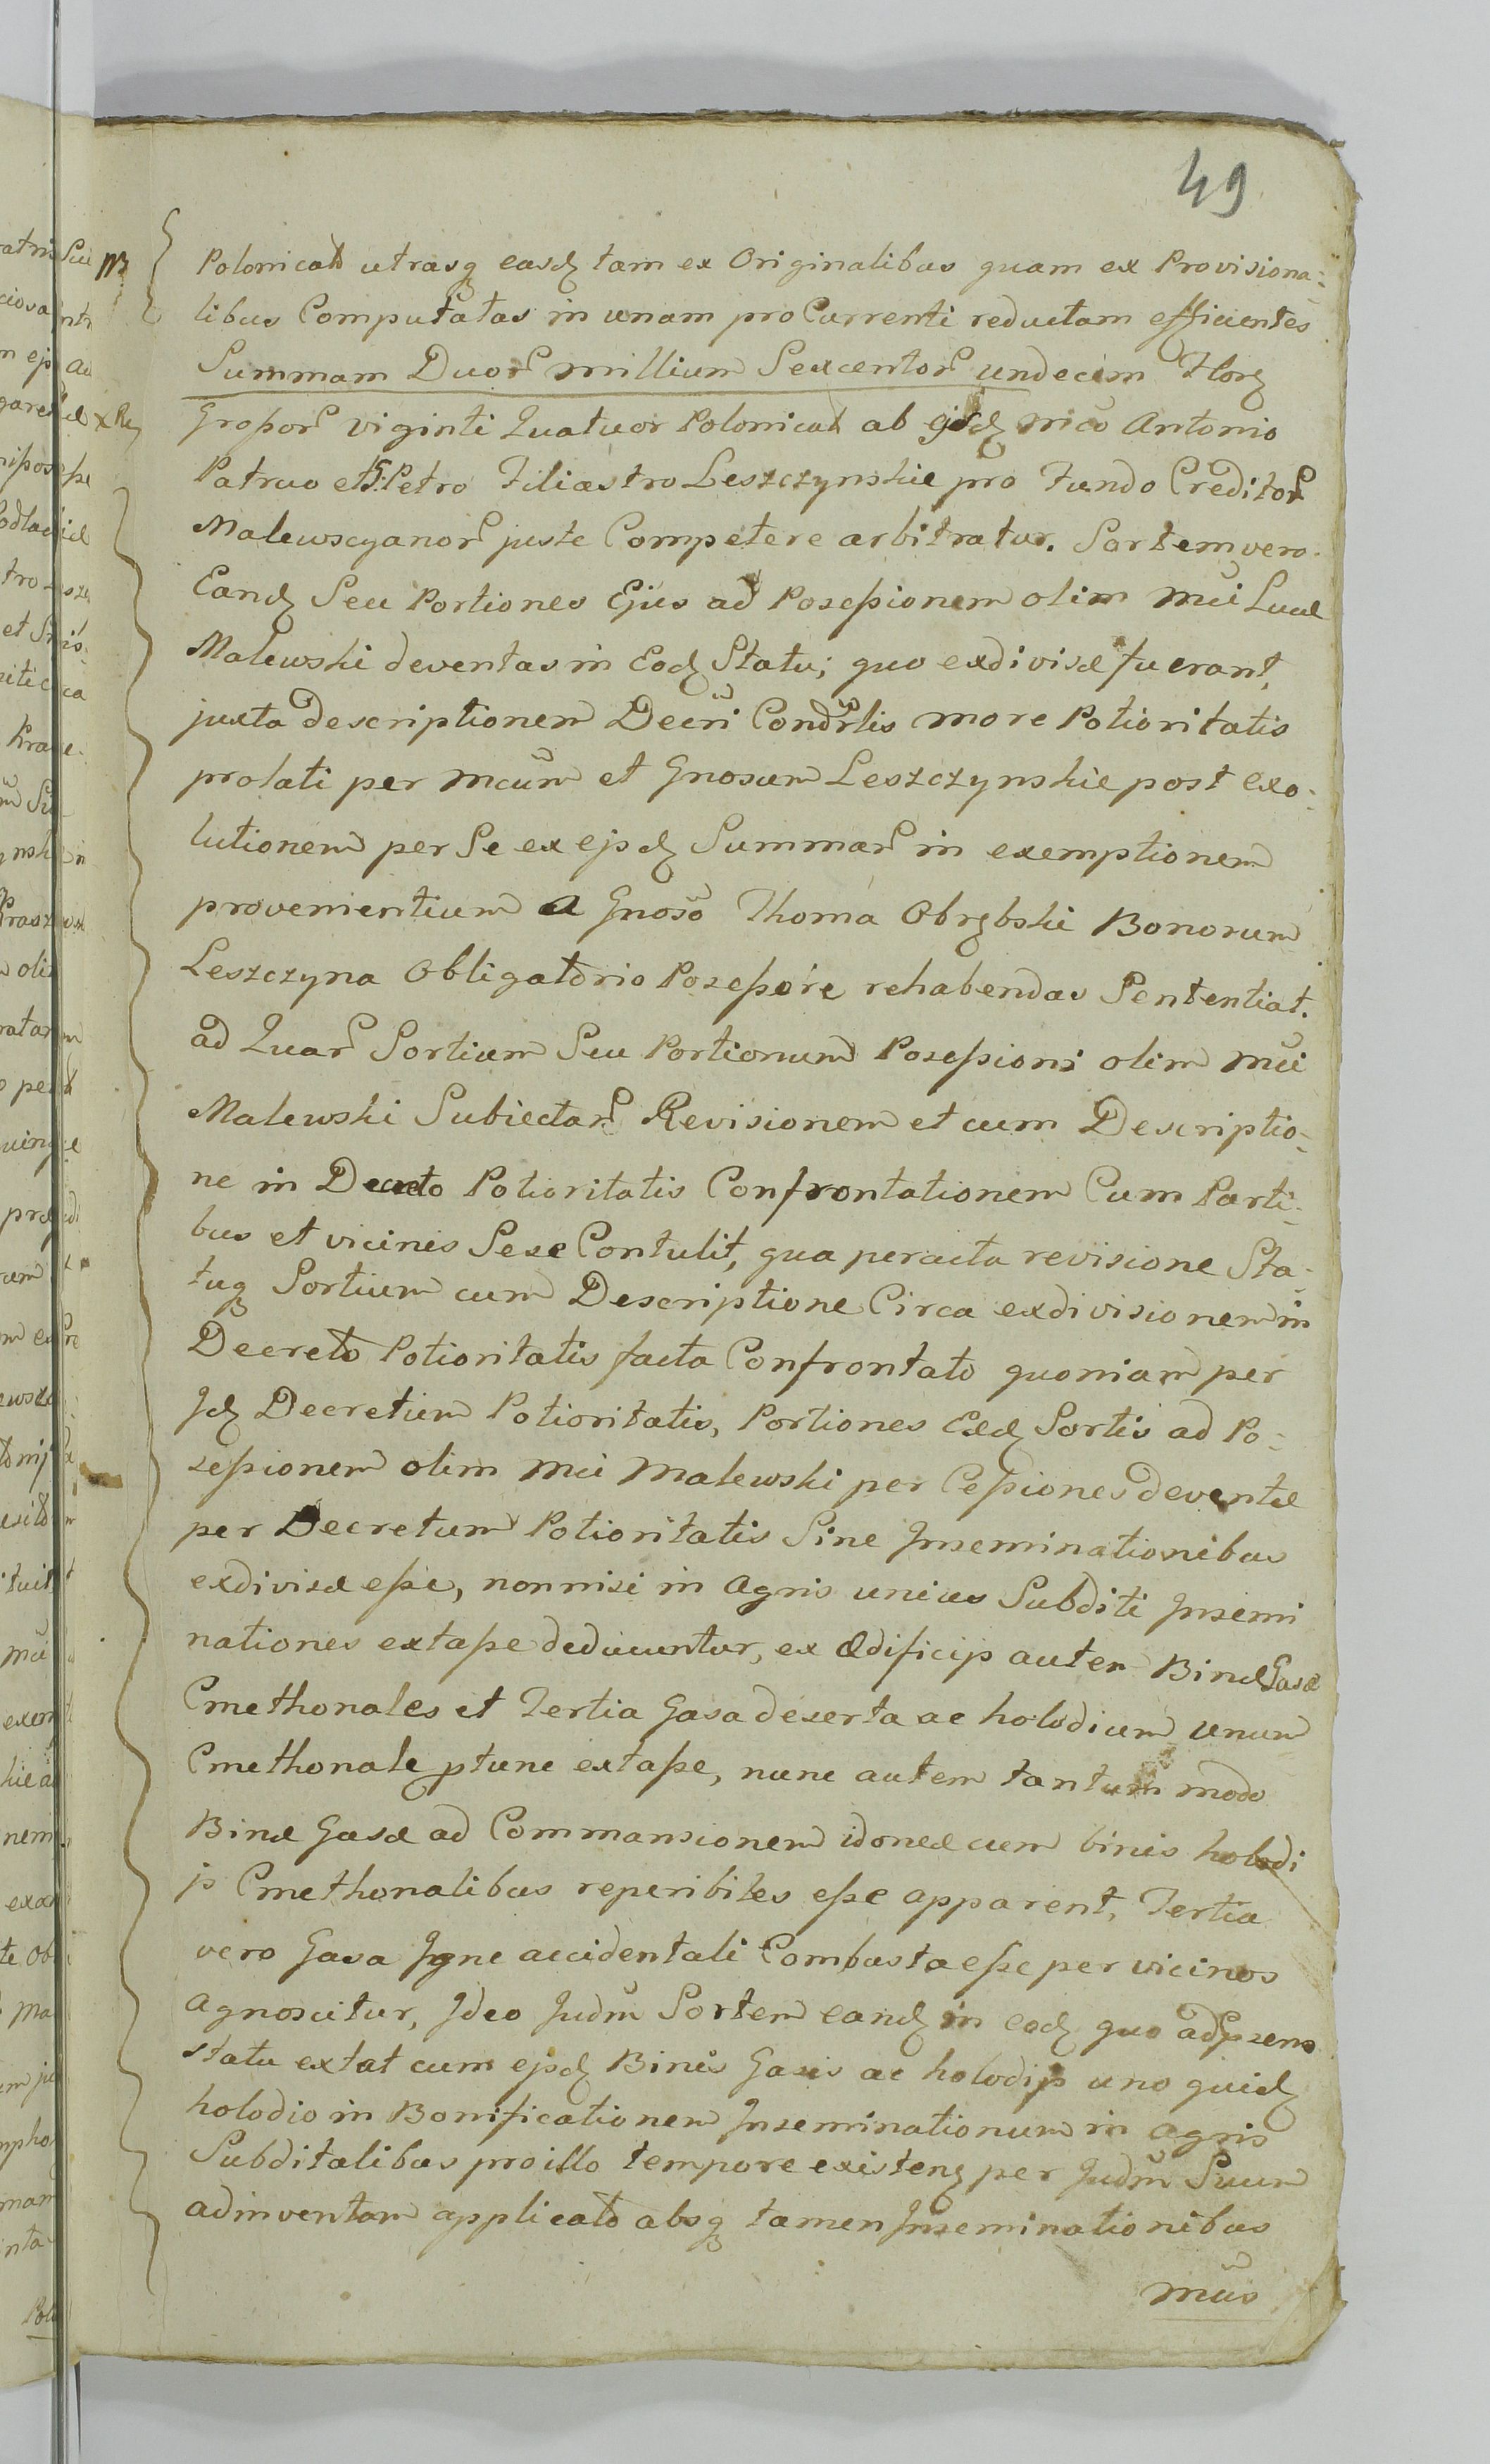 49
NB
Polonical utrasq easdꝫ tam ex Originalibus quam ex Provisiona=
libus Computatas in unam pro Currenti reductam efficientes
Summam Duor millium Sexcentor undecim Florꝫ
Großor viginti Quatuor Polonical ab ijsdꝫ Mco Antonio
Patruo et G. Petro Filiastro Leszczynskie pro Fundo Creditor
Malewscyanor juste Competere arbitratur. Sortem vero
Eandꝫ Seu Portiones Ejus ad Poseßionem olim Mci Lucæ
Malewski deventas in Eodꝫ Statu, quo exdivisæ fuerant,
juxta descriptionem Decri Condrlis more Potioritatis
prolati per Mcum et Gnosum Leszczynskie post exo=
lutionem per Se ex ejsdꝫ Summar in exemptionem
provenientium a Gnoso Thoma Obrębski Bonorum
Leszczyna Obligatorio Poseßore rehabendas Sententiat.
ad Quar Sortium Seu Portionum Poseßioni olim Mci
Malewski Subiectar Revisionem et cum Descriptio=
ne in Decreto Potioritatis Confrontationem Cum Parti=
bus et vicinis Sese Contulit, qua peracta revisione Sta=
tuq Sortium cum Descriptione Circa exdivisionem in
Decreto Potioritatis facta Confrontato quoniam per
Jdꝫ Decretum Potioritatis, Portiones Exdꝫ Sortis ad Po=
seßionem olim Mci Malewski per Ceßiones deventæ
per Decretum Potioritatis Sine Inseminationibus
exdivisæ eße, nonnisi in Agris unius Subditi Insemi
nationes extaße deducuntur, ex Ædificijs autem Binæ Gasæ
Cmethonales et Tertia Gasa deserta ac holodium unum
Cmethonale ptunc extaße, nunc autem tantum modo
Binæ Gasæ ad Commansionem idoneæ cum binis holodi
js Cmethonalibus reperibiles eße apparent, Tertia
vero Gasa Igne accidentali Combusta eße per vicinos
agnoscitur, Ideo Judm Sortem eandꝫ in eodꝫ quo ad psens
statu extat cum ejsdꝫ Binis Gasis ac holodijs uno quidꝫ
holodio in Bonificationem Inseminationum in Agris
Subditalibus pro illo tempore existenꝫ per Judm Suum
adinventam applicato absq tamen Inseminationibus
Mus